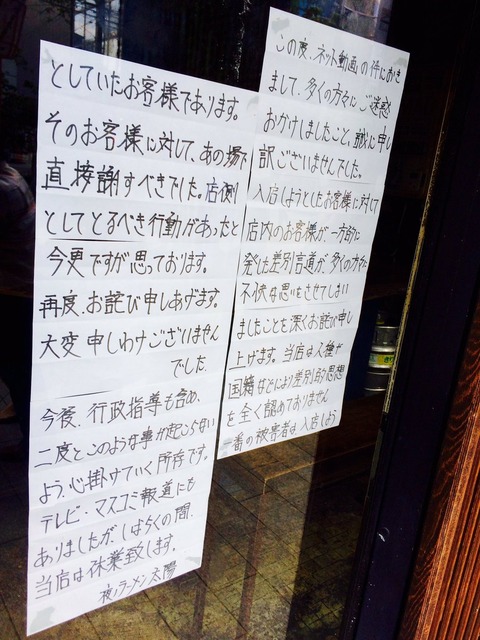 この度、ネット動画の件におき
まして、多くの方々にご迷惑
おかけしましたこと、誠に申し
訳ございませんでした。
入店しようとしたお客様に対して
店内のお客様が一方的に
発した差別言道が、多くの方々に
不快な思いをさせてしまい
ましたことを深くお詫び申し
上げます。当店は人種や
国籍などにより差別的思想
を全く認めておりません
一番の被害者は入店しよう
としていたお客様であります。
そのお客様に対して、あの場で
直接謝すべきでした。店側
としてとるべき行動があったと
今更ですが思っております。
再度、お詫び申しあげます。
大変申しわけございません
でした。
今後、行政指導も含め、
二度とこのような事が起こらない
よう、心掛けていく所存です。
テレビ・マスコミ報道にも
ありましたが、しばらくの間、
当店は休業致します。
夜ノラーメン太陽